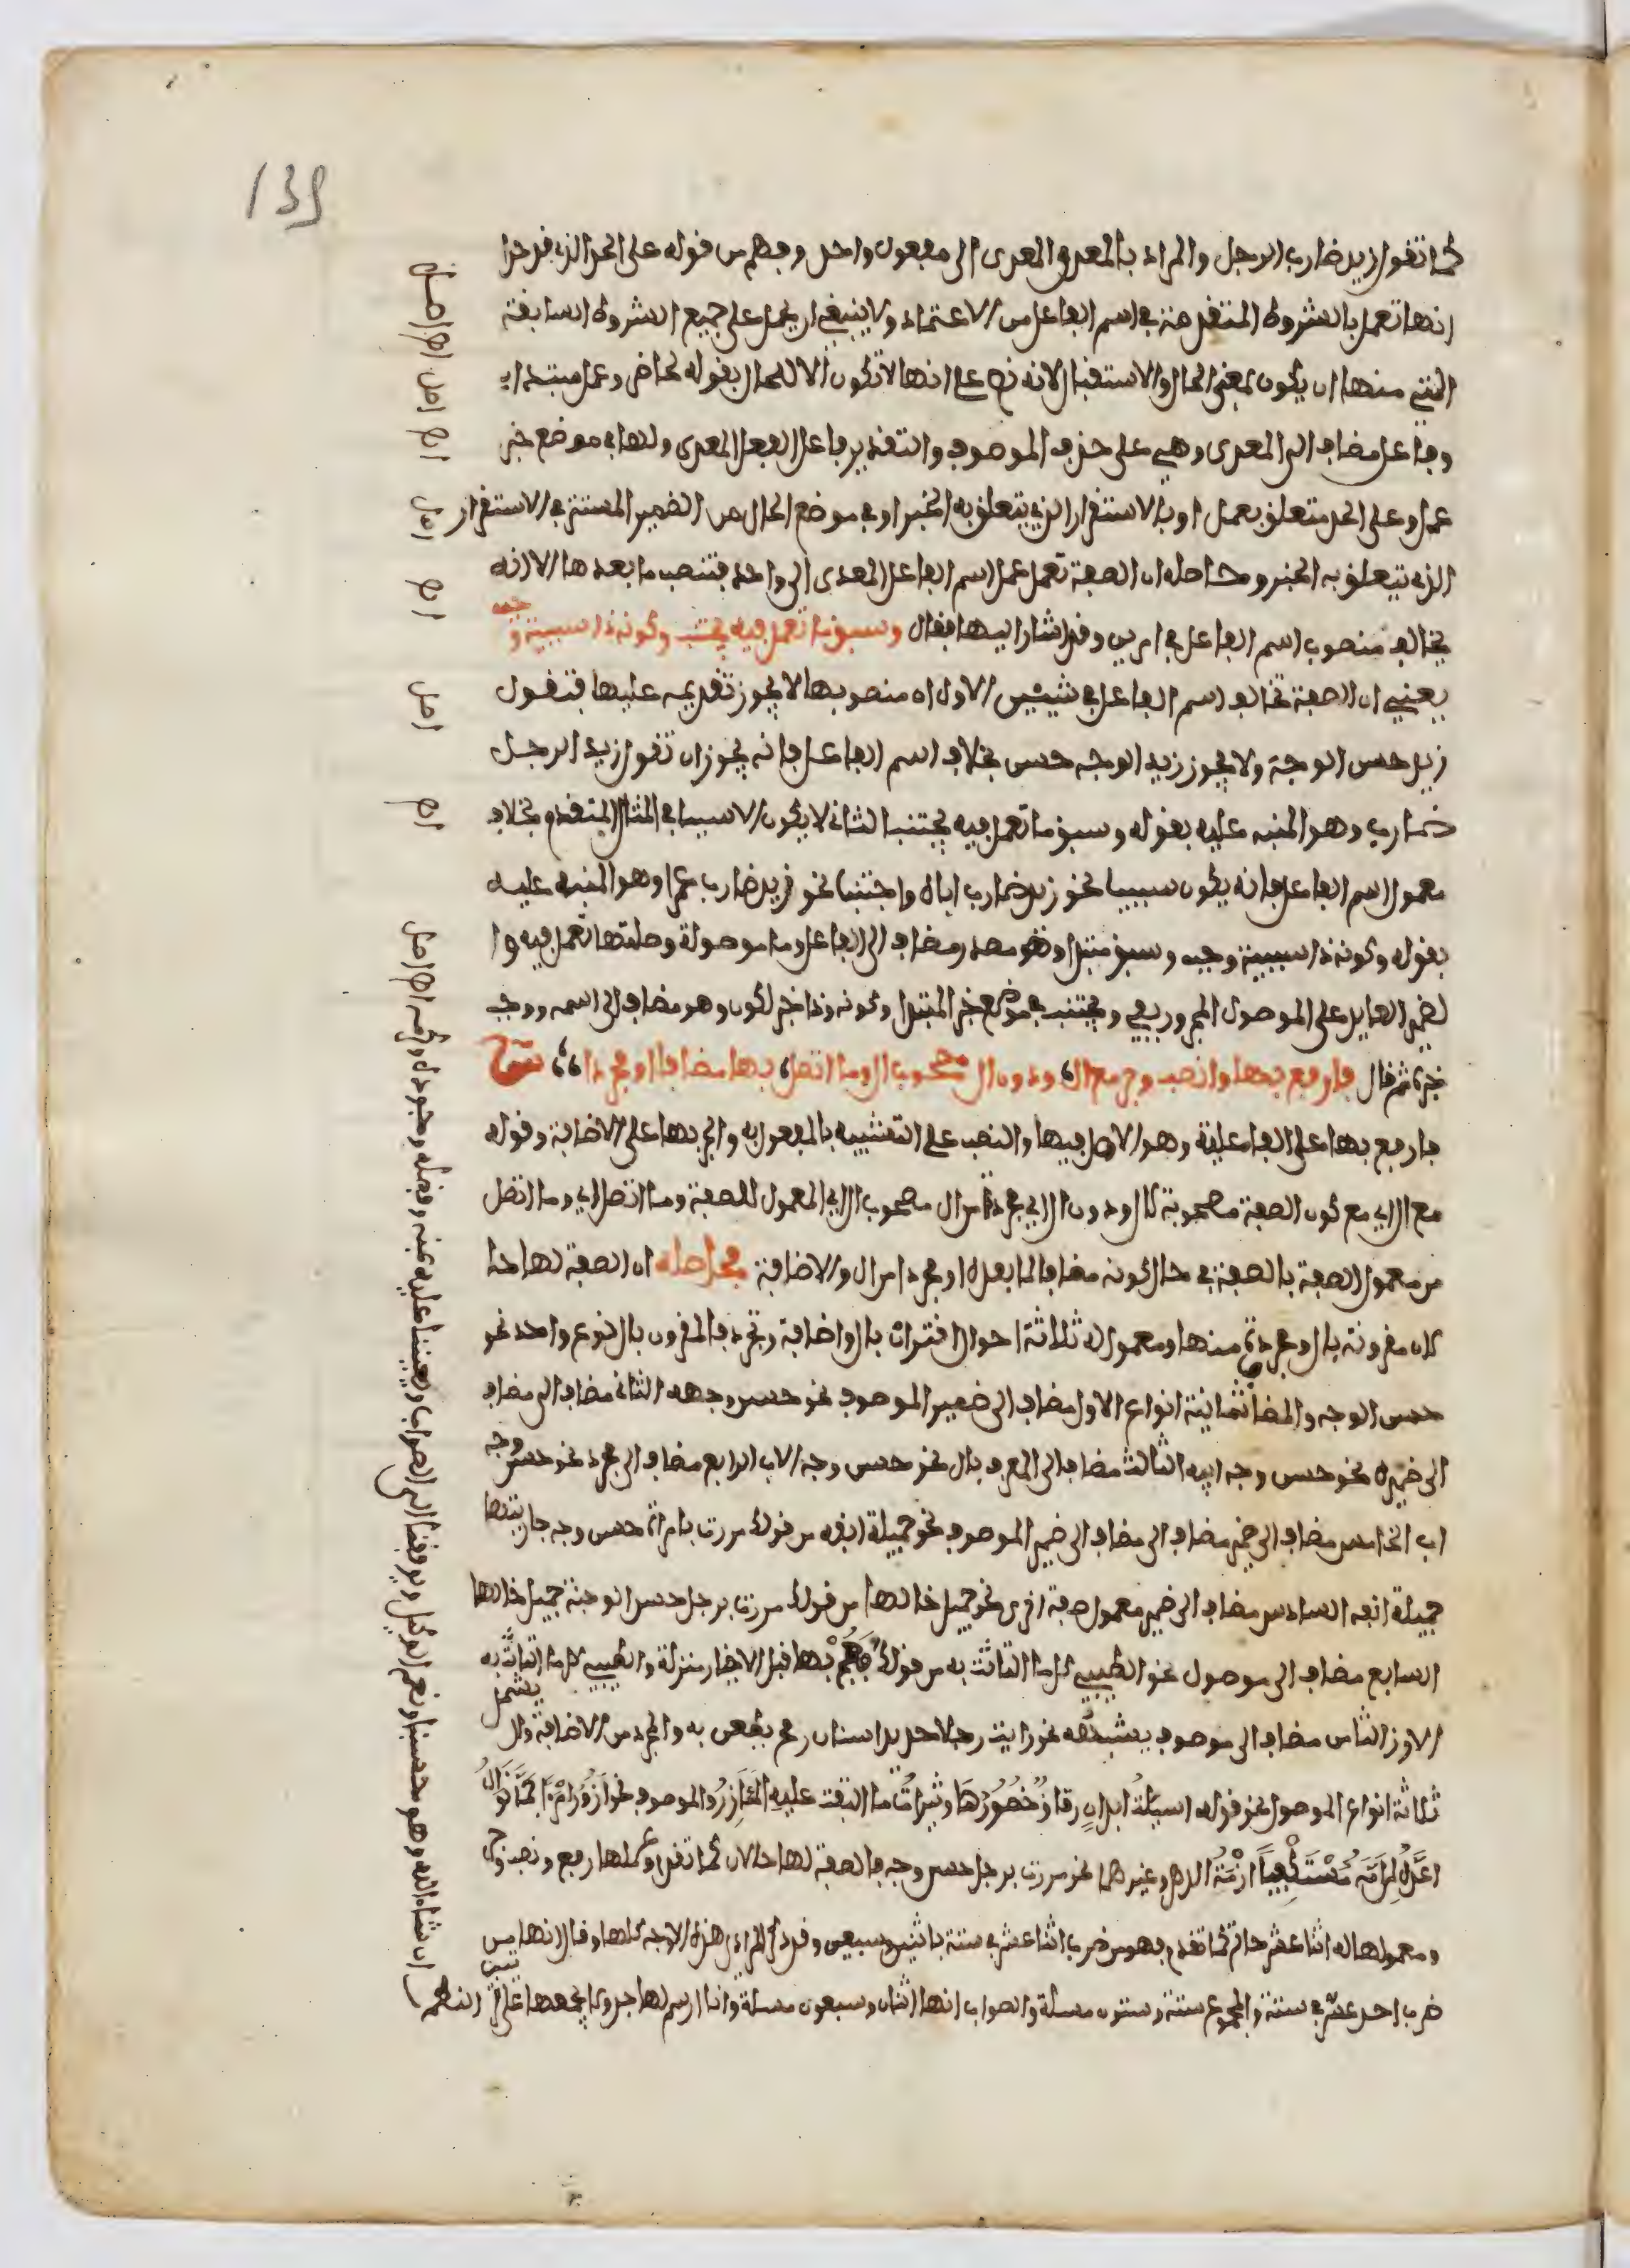 139
كما تقول زيد ضارب الرجل والمراد بالمعدى المعدى الى مفعول واحد وفهم من قوله على الحد الذي قد حدا
انها تعمل بالشروط المتقدمة في اسم الفاعل من الاعتماد ولا ينبغي ان يحمل على جميع الشروط السابقة
التي منها ان يكون بمعنى الحال والاستقبال لانه نص على انها لا تكون الا للحال بقوله لحاضر وعمل مبتدا
وفاعل مضاف الى المعدى وهي على حذف الموصوف والتقدير فاعل الفعل المعدى ولها في موضع خبر
عمل وعلى الحد متعلق بعمل او بالاستقرار الذي يتعلق به الخبر او في موضع الحال من الضمير المستتر في الاستقرار
الذي يتعلق به الخبر وحاصله ان الصفة تعمل عمل اسم الفاعل المعدى الى واحد فتنصب ما بعدها الا انه
يخالف منصوب اسم الفاعل في امرين وقد اشار اليهما فقال وسبق ما تعمل فيه يجتنب وكونه ذا سببية وجب
يعني ان الصفة تخالف اسم الفاعل في شيئين الاول ان منصوبها لا يجوز تقديمه عليها فتقول
زيد حسن الوجه ولا يجوز زيد الوجه حسن بخلاف اسم الفاعل فانه يجوز ان تقول زيد الرجل
ضارب وهو المنبه عليه بقوله وسبق ما تعمل فيه يجتنب الثاني لا يكون الا سببيا في المثال المتقدم بخلاف
معمول اسم الفاعل فانه يكون سببيا نحو زيد ضارب اباه واجنبيا نحو زيد ضارب عمرا وهو المنبه عليه
بقوله وكونه ذا سببية وجب وسبق مبتدا وهو مصدر مضاف الى الفاعل وما موصولة وصلتها تعمل فيه وا
لضمير العايد على الموصول المجرور بفي ويجتنب في موضع خبر المبتدا وكونه وذا خبر لكون وهو مضاف الى اسمه ووجب
خبره ثم قال فارفع بها وانصب وجر مع ال ودون ال مصحوب ال وما اتصل بها مضافا او مجردا
فارفع بها على الفاعلية وهو الاصل فيها والنصب على التشبيه بالمفعول به والجر بها على الاضافة وقوله
مع ال اي مع كون الصفة مصحوبة لال ودون ال اي مجردة من ال مصحوب ال اي المعمول للصفة وما اتصل اي وما اتصل
من معمول الصفة بالصفة في حال كونه مضافا لما بعده او مجردا من ال والاضافة فحاصله ان الصفة لها حا
لان مقرونة بال ومجردة منها ومعموله ثلاثة احوال اقتران بال واضافة وتجرد فالمقرون بال نوع واحد نحو
حسن الوجه والمضاف ثمانية انواع الاول مضاف الى ضمير الموصوف نحو حسن وجهه الثاني مضاف الى مضاف
الى ضميره نحو حسن وجه ابيه الثالث مضاف الى المعرف بال نحو حسن وجه الاب الرابع مضاف الى مجرد نحو حسن وجه
اب الخامس مضاف الى ضمير مضاف الى مضاف الى ضمير الموصوف نحو جميلة انفه من قولك مررت بامراة حسن وجه جاريتها
جميلة انفه السادس مضاف الى ضمير معمول صفة اخرى نحو جميل خالها من قولك مررت برجل حسن الوجنة جميل خالها
السابع مضاف الى موصول نحو الطيبي كل ما التاثت به من قولك فعجتها قبل الاخيار منزلة والطيبي كل ما التاثت به
الازر الثامن مضاف الى موصوف يشبهه نحو رايت رجلا حديد اسنان رمح يطعن به والمجرد من الاضافة وال يشمل
ثلاثة انواع الموصول نحو قوله اسيلة ابدان رقاق خصورها وثيرات ما التفت عليه المآزر والموصوف نحو ازور امرأ جما نوال
اعده لمن امه مستكفيا ازمة الدهر وغيرهما نحو مررت برجل حسن وجه فالصفة لها حالان كما تقدم وعملها رفع ونصب وجر
ومعمولها له اثنا عشر حالا كما تقدم فهو من ضرب اثنا عشر في ستة باثنين وسبعين وقد ذكر المرادي هذه الاوجه كلها وقال انها من
ضرب احد عشر في ستة والمجموع ستة وستون مسئلة والصواب انها اثنان وسبعون مسئلة وانا ارسم لها جدولا يجمعها على ترتيب النظم
ان شاء الله وهو حسبنا ونعم الوكيل ويوفقنا الى الصواب ويعيننا عليه بمنه وفضله وجوده وكرمه